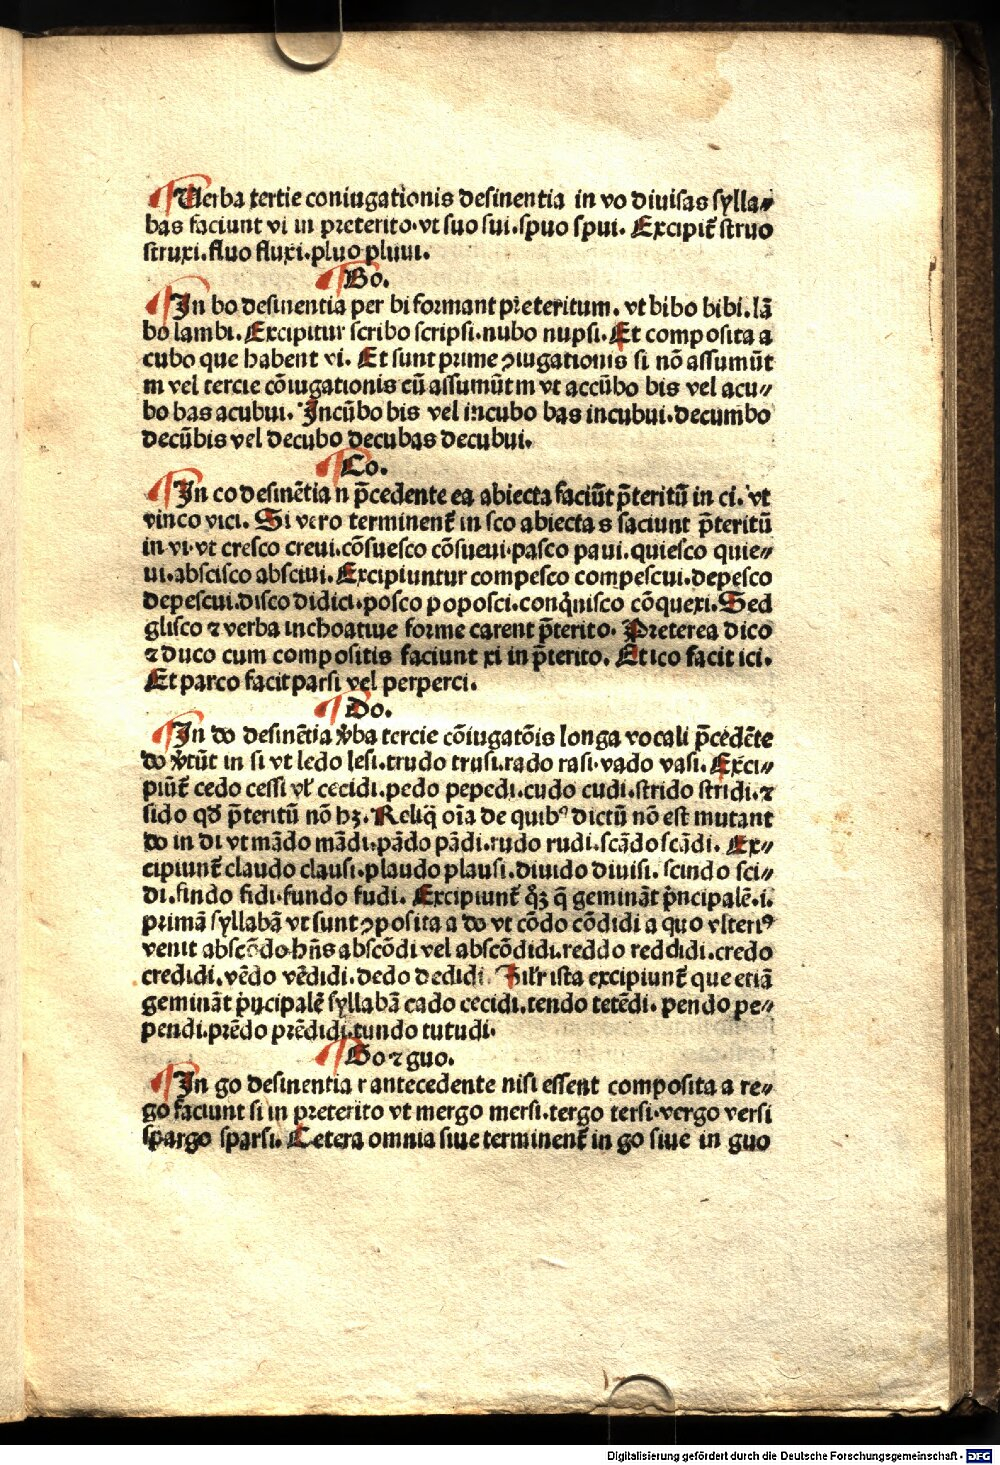 ¶ Uerba tertie coniugationis desinentia in vo diuisas sylla⸗
bas faciunt vi in preterito·vt suo sui.spuo spui. Excipit᷑ struo
struxi.fluo fluxi.pluo pluui.
¶ Bo.
¶ In bo desinentia per bi formant preteritum. vt bibo bibi.lā
bo lambi. Excipitur scribo scripsi.nubo nupsi. Et composita a
cubo que habent vi. Et sunt prime ꝯiugationis si nō assumūt
m vel tercie cōiugationis cū assumūt m vt accūbo bis vel acu⸗
bo bas acubui. Incūbo bis vel incubo bas incubui.decumbo
decūbis vel decubo decubas decubui.
¶ Co.
¶ In co desinētia n p̄cedente ea abiecta faciūt p̄teritū in ci. vt
vinco vici. Si vero terminent᷑ in sco abiecta s faciunt p̄teritū
in vi·vt cresco creui.cōsuesco cōsueui·pasco paui.quiesco quie⸗
ui.abscisco absciui. Excipiuntur compesco compescui.depesco
depescui.disco didici.posco poposci.conq̄nisco cōquexi. Sed
glisco ⁊ verba inchoatiue forme carent p̄terito. Preterea dico
⁊ duco cum compositis faciunt xi in p̄terito. Et ico facit ici.
Et parco facit parsi vel perperci.
¶ Do.
¶ In do desinētia v̄ba tercie cōiugatōis longa vocali p̄cedēte
do v̄tūt in si vt ledo lesi.trudo trusi.rado rasi·vado vasi. Exci⸗
piūt᷑ cedo cessi vl' cecidi.pedo pepedi.cudo cudi.strido stridi.⁊
sido qd̄ p̄teritū nō hꝫ. Reliq̄ oīa de quibꝰ dictū nō est mutant
do in di vt mādo mādi.pādo pādi.rudo rudi.scādo scādi. Ex⸗
cipiunt᷑ claudo clausi.plaudo plausi.diuido diuisi.scindo sci⸗
di.findo fidi·fundo fudi. Excipiunt᷑ qꝫ̄ q̄ gemināt p̄ncipalē.i.
primā syllabā vt sunt ꝯposita a do vt cōdo cōdidi a quo vlteriꝰ
venit abscōdo·hn̄s abscōdi vel abscōdidi.reddo reddidi.credo
credidi.vēdo vēdidi.dedo dedidi. Silr̄ ista excipiunt᷑ que etiā
gemināt p̄ncipalē syllabā cado cecidi.tendo tetēdi. pendo pe⸗
pendi.prēdo prēdidi.tundo tutudi.
¶ Go ⁊ guo.
¶ In go desinentia r antecedente nisi essent composita a re⸗
go faciunt si in preterito vt mergo mersi.tergo tersi·vergo versi
spargo sparsi. Cetera omnia siue terminent᷑ in go siue in guo
Digitalisierung gefördert durch die Deutsche Forschungsgemeinschaft - DFG